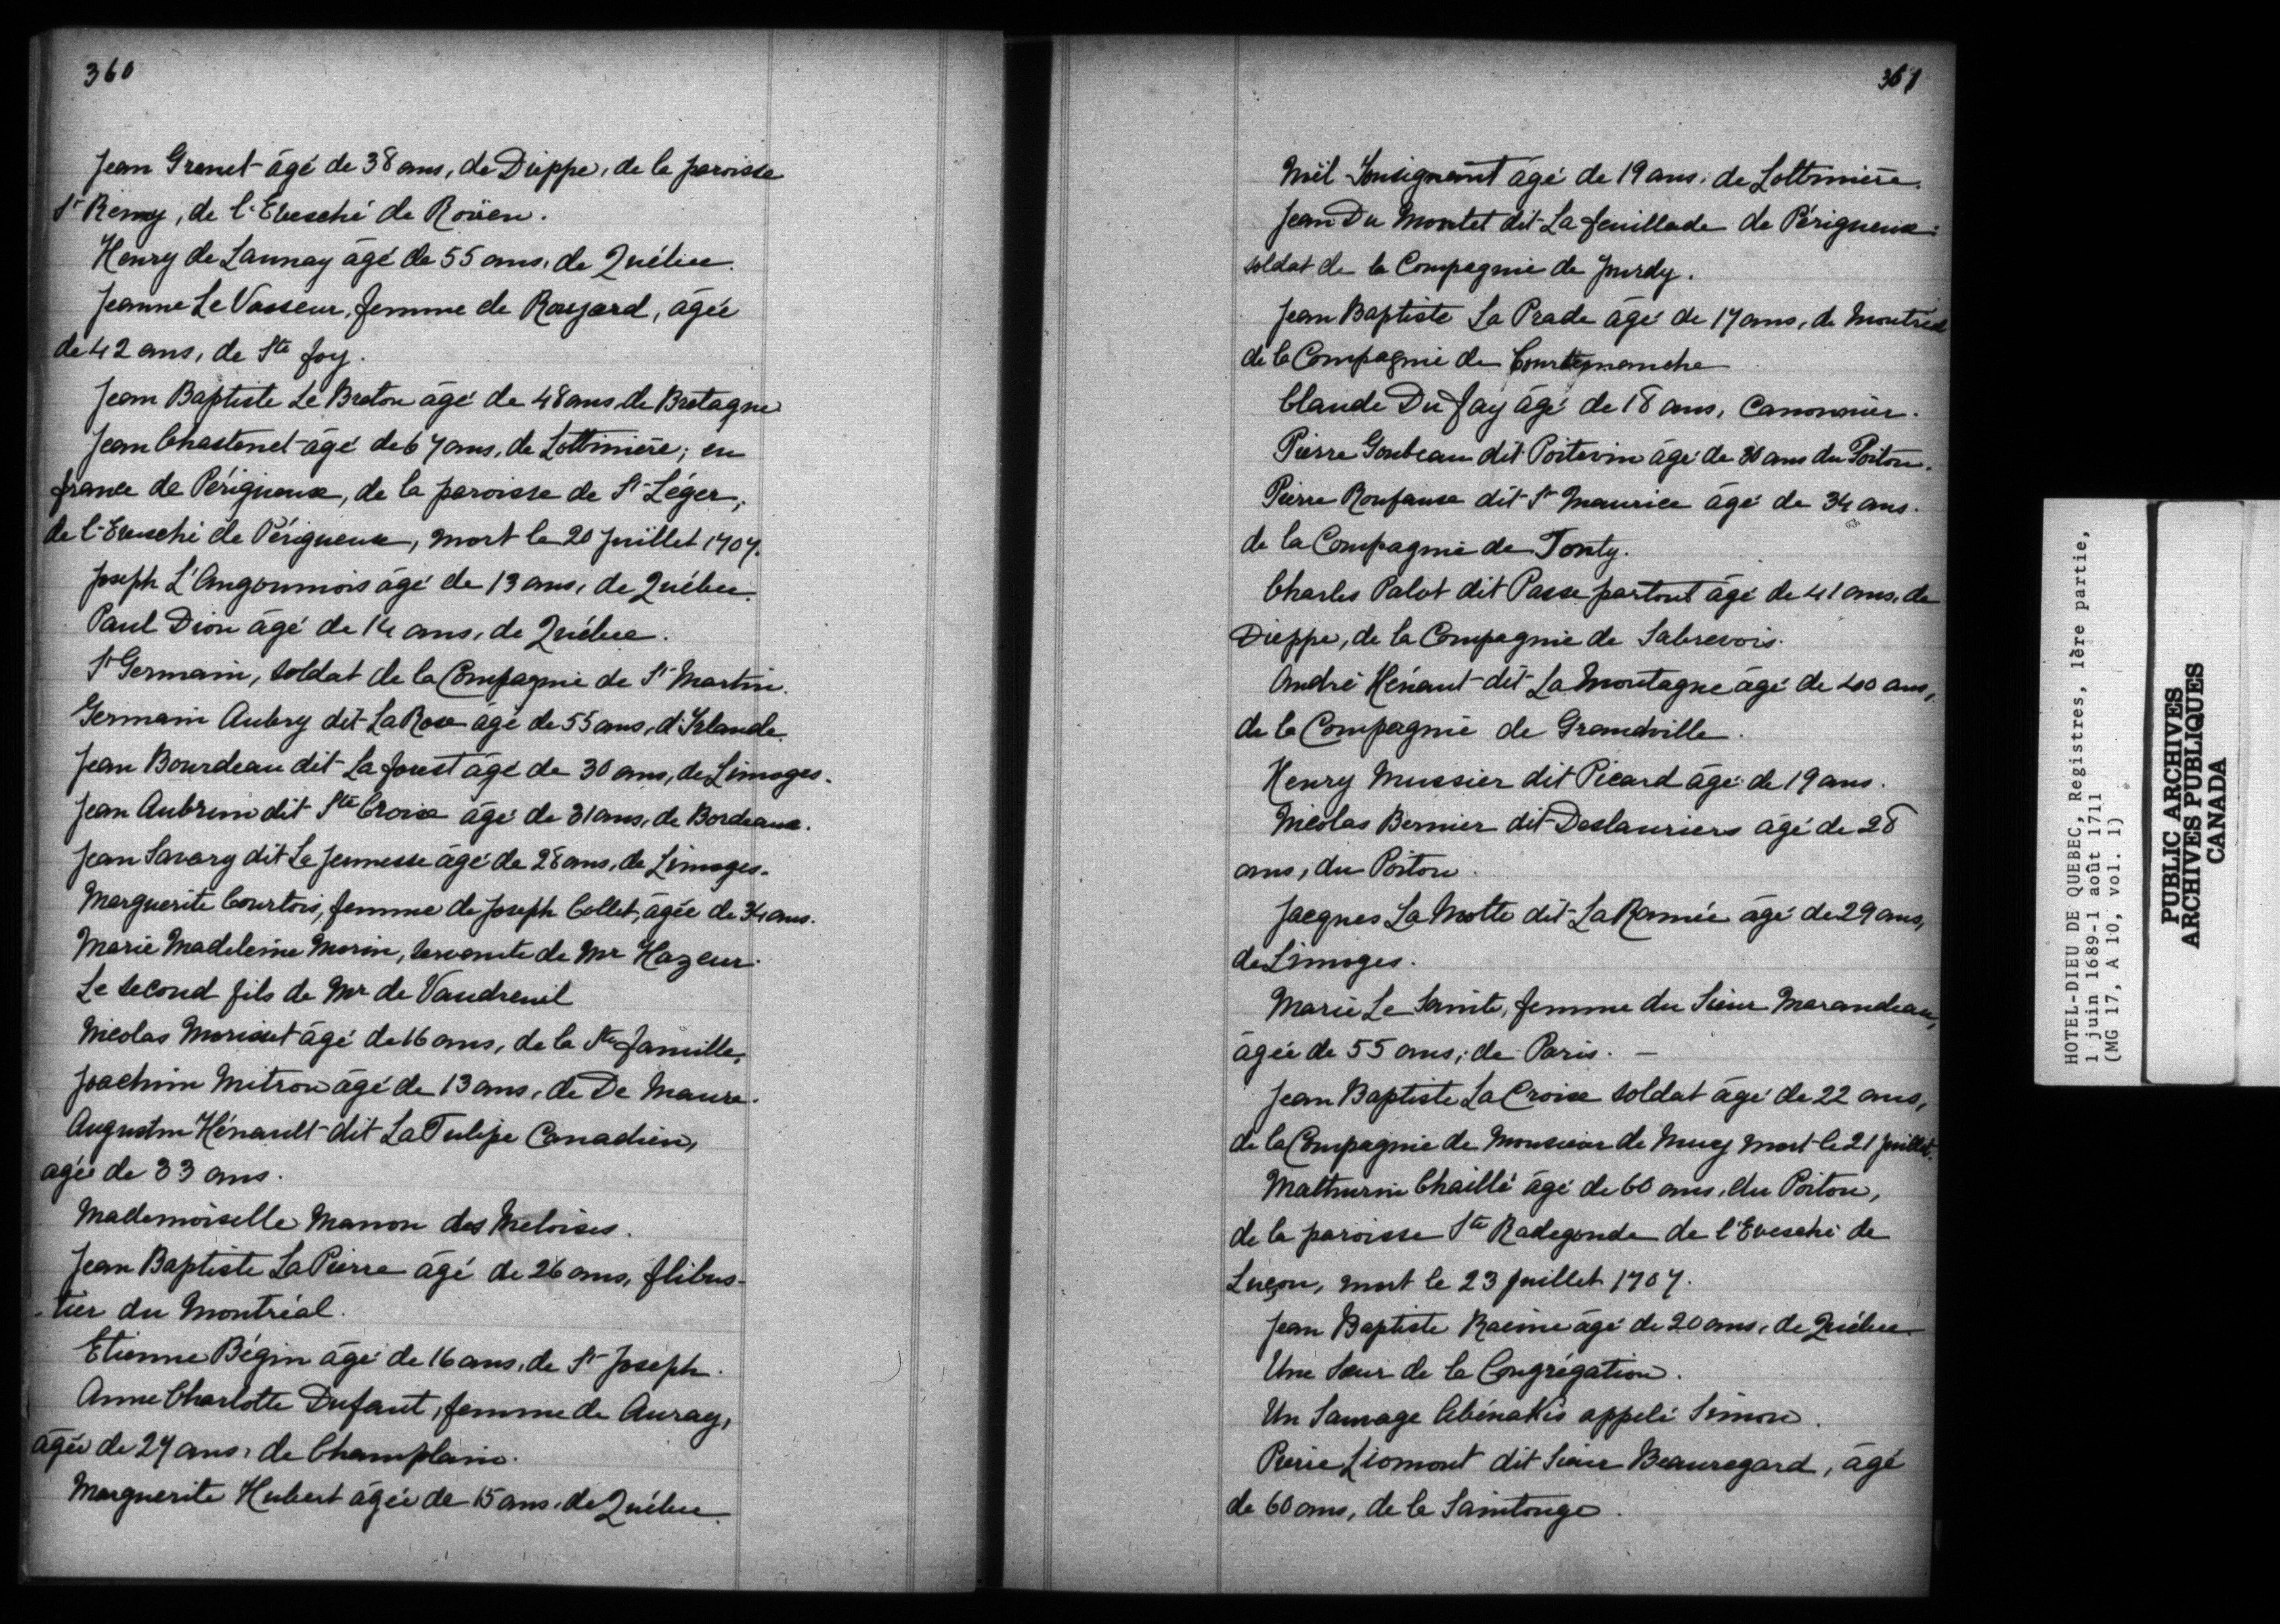 360
Jean Grenet âgé de 38 ans, de Dieppe, de la paroisse
St Remy, de l'Evesché de Roüen.
Henry de Launay âgé de 55 ans, de Québec.
Jeanne Le Vasseur, femme de Roujard, âgée
de 42 ans, de Ste foy.
Jean Baptiste Le Breton âgé de 48 ans, de Bretagne
Jean Chastenet âgé de 67 ans, de Lottinière; en
france de Périgueux, de la paroisse de St Léger,
de l'Evesché de Périgueux, mort le 20 Juillet 1707.
Joseph L'Angoumois âgé de 13 ans, de Québec.
Paul Dion âgé de 14 ans, de Québec.
St Germain, soldat de la Compagnie de St Martin.
Germain Aubry dit La Rose âgé de 55 ans, d'Irlande.
Jean Bourdeau dit La forest âgé de 30 ans, de Limoges.
Jean Aubrun dit Ste Croix âgé de 31 ans, de Bordeaux.
Jean Savary dit La Jeunesse âgé de 28 ans, de Limoges.
Marguerite Courtois, femme de Joseph Collet, âgée de 34 ans.
Marie Madeleine Morin, servante de Mr Hazeur.
Le second fils de Mr de Vaudreuil
Nicolas Morisset âgé de 16 ans, de la Ste famille.
Joachim Mitron âgé de 13 ans, de De Maure.
Augustin Hénault dit La Tulipe Canadien,
agée de 33 ans.
Mademoiselle Manon des Meloises.
Jean Baptiste La Pierre âgé de 26 ans, flibus-
-tier du Montréal.
Etienne Bégin âgé de 16 ans, de St Joseph.
Anne Charlotte Dufaut, femme de Auray,
âgée de 27 ans, de Champlain.
Marguerite Hubert âgée de 15 ans, de Québec.
361
Noël âgé de 19 ans, de Lottinière.
Jean Du Montet dit La feuillade de Périgueux:
soldat de la Compagnie de Jourdy.
Jean Baptiste La Prade âgé de 17 ans, de Montréal
de la Compagnie de Courtemanche
Claude Du fay âgé de 18 ans, Canonnier.
Pierre Goubeau dit Poitevin âgé de 30 ans du Poitou.
Pierre Roufanse dit St Maurice âgé de 34 ans.
de la Compagnie de Tonty.
Charles Palot dit Passe partout âgé de 41 ans, de
Dieppe, de la Compagnie de Sabrevois.
André Hénaut dit La Montagne âgé de 40 ans,
de la Compagnie de Grandville.
Henry Mussier dit Picard âgé de 19 ans.
Nicolas Bernier dit Deslauriers âgé de 28
ans, du Poitou.
Jacques La Motte dit La Ramée âgé de 29 ans,
de Limoges.
Marie Le Sainte, femme du Sieur Marandeau,
âgée de 55 ans, de Paris. —
Jean Baptiste La Croix soldat âgé de 22 ans,
de la Compagnie de Monsieur de Muy mort le 21 Juillet.
Mathurin Chaillé âgé de 60 ans, du Poitou,
de la paroisse Ste Radegonde de l'Evesché de
Luçon, mort le 23 Juillet 1707.
Jean Baptiste Racine âgé de 20 ans, de Québec.
Une Sœur de la Congrégation.
Un Sauvage Abénakis appelé Simon.
Pierre Liomont dit Sieur Beauregard, âgé
de 60 ans, de la Saintonge.
HOTEL-DIEU DE QUEBEC, Registres, 1ère partie,
1 juin 1689-1 août 1711
(MG 17, A 10, vol. 1)
PUBLIC ARCHIVES
ARCHIVES PUBLIQUES
CANADA